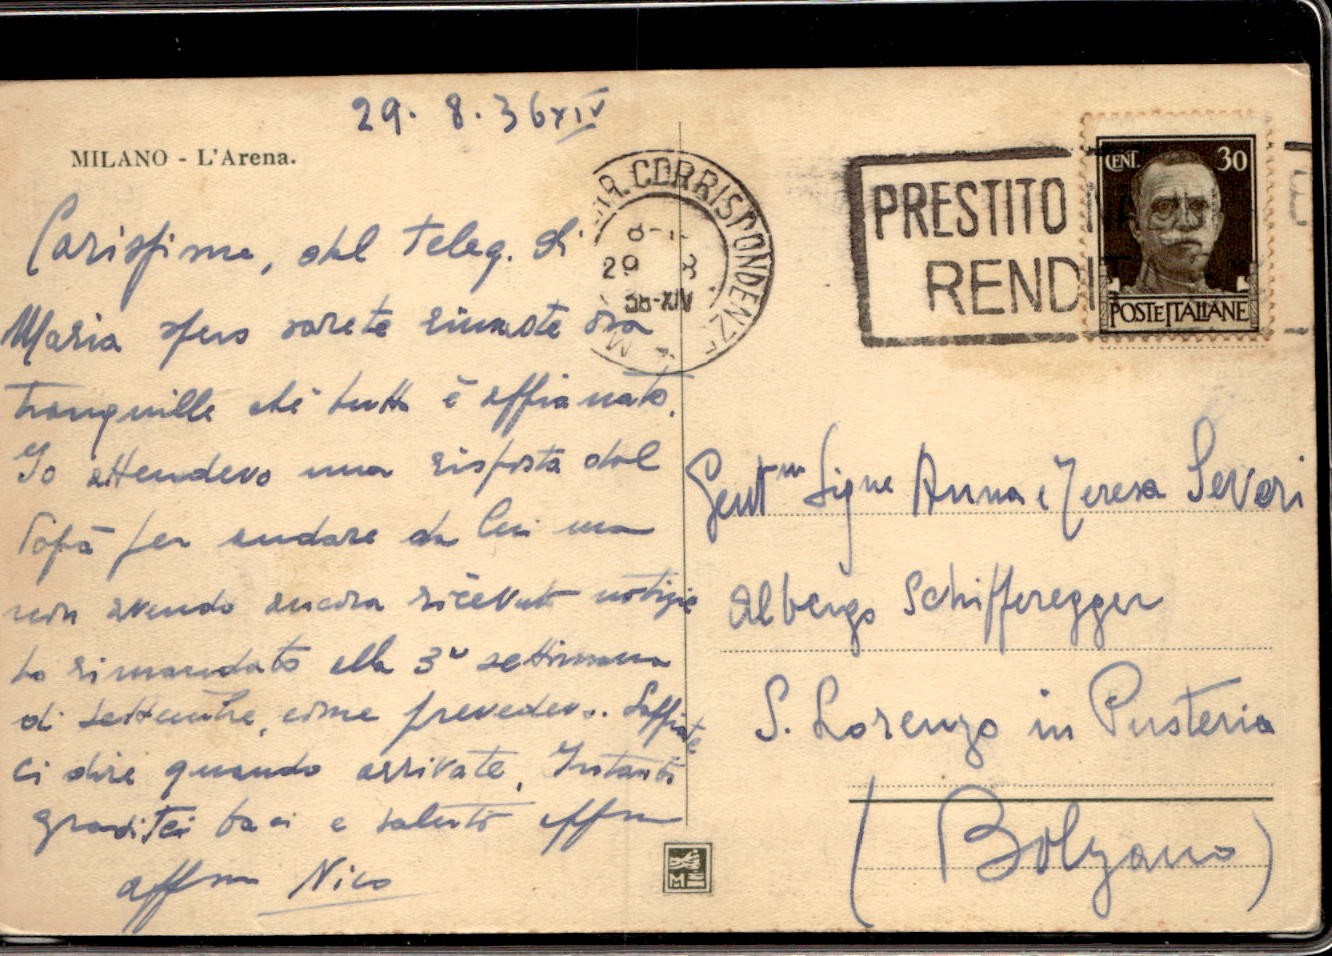 29. 8. 36 XIV
MILANO - L'Arena.
Carissime, dal teleg. di
Maria spero sarete rimaste ora
tranquille chè tutto è appianato.
Io attendevo una risposta dal
Papà per andare da lui ma
non avendo ancora ricevuto notizie
ho rimandato alla 3ª settimana
di settembre, come prevedevo.
ci dire quando arrivate. Intanto
baci e saluti
affmo Nico
CORRISPONDENZE
29 8
36-XIV
PRESTITO
REND
CENT. 30
POSTE ITALIANE
Gentme Signe Anna e Teresa Severi
Albergo Schifferegger
S. Lorenzo in Pusteria
(Bolzano)